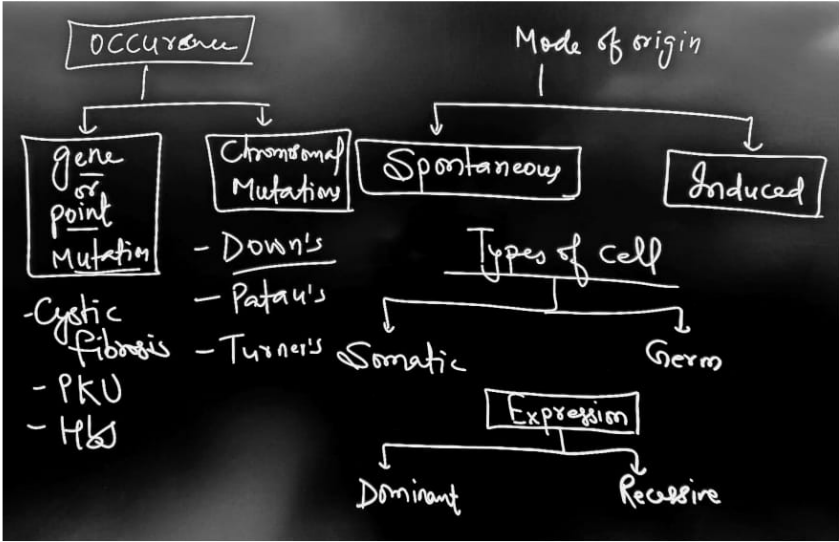 Occurence
gene
or
point
Mutation
- Cystic
fibrosis
- PKU
- HbS
Chromosomal
Mutations
- Down's
- Patau's
- Turner's
Mode of origin
Spontaneous
Induced
Types of cell
Somatic
Germ
Expression
Dominant
Recessive